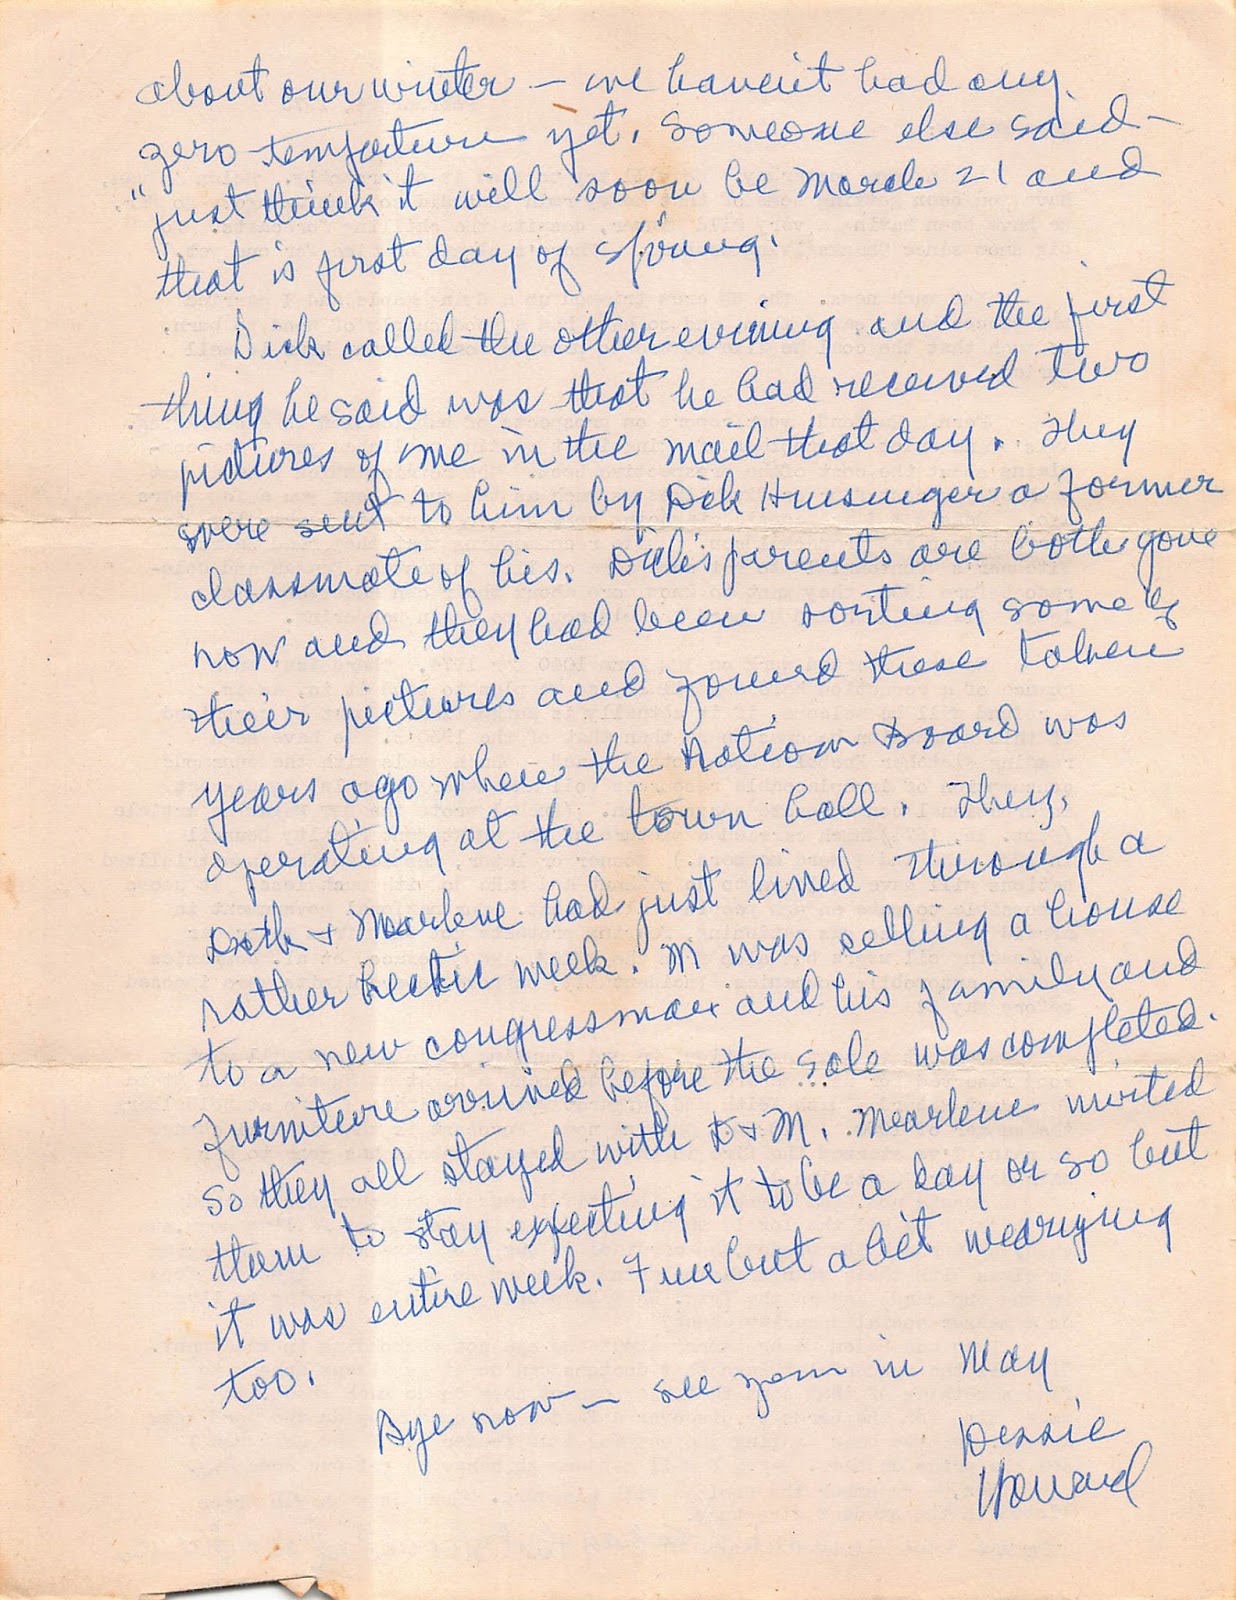 about our winter — we haven't had any
zero temperture yet. Someone else said —
"just think it will soon be March 21 and
that is first day of Spring.
Dick called the other evening and the first
thing he said was that he had received two
pictures of me in the mail that day. They
were sent to him by Dick a former
classmate of his. Dick's parents are both gone
now and they had been sorting some of
their pictures and found these taken
years ago when the Ration Board was
operating at the town hall. They,
Dick + Mearlene had just lived through a
rather hectic week. M was selling a house
to a new congressman and his family and
furniture arrived before the sale was completed.
So they all stayed with D + M. Mearlene invited
them to stay expecting it to be a day or so but
it was entire week. Fun but a bit wearying
too.
Bye now — see you in May
Dessie
Howard